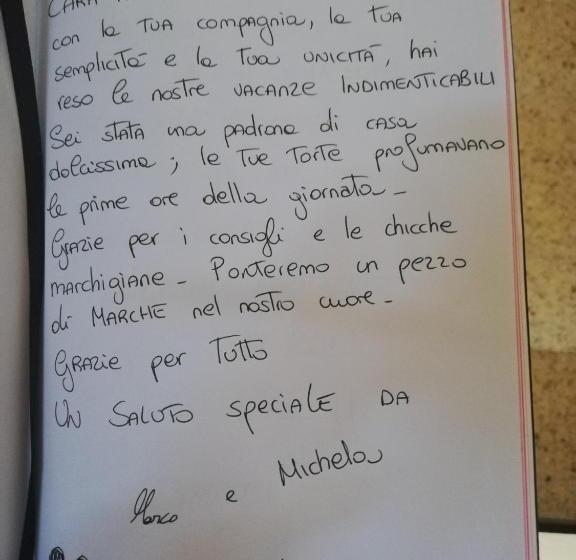 CARA
con la TUA compagnia, la TUA
semplicità e la Tua UNICITÀ, hai
reso le nostre VACANZE INDIMENTICABILI
Sei STATA una padrona di CASA
dolcissima; le TUE TORTE profumAVANO
le prime ore della giornata -
GRAZIE per i consigli e le chicche
marchigiane - Porteremo un pezzo
di MARCHE nel nostro cuore -
GRAZIE per TUTTO
UN SALUTO SPECIALE DA
Marco e Michela